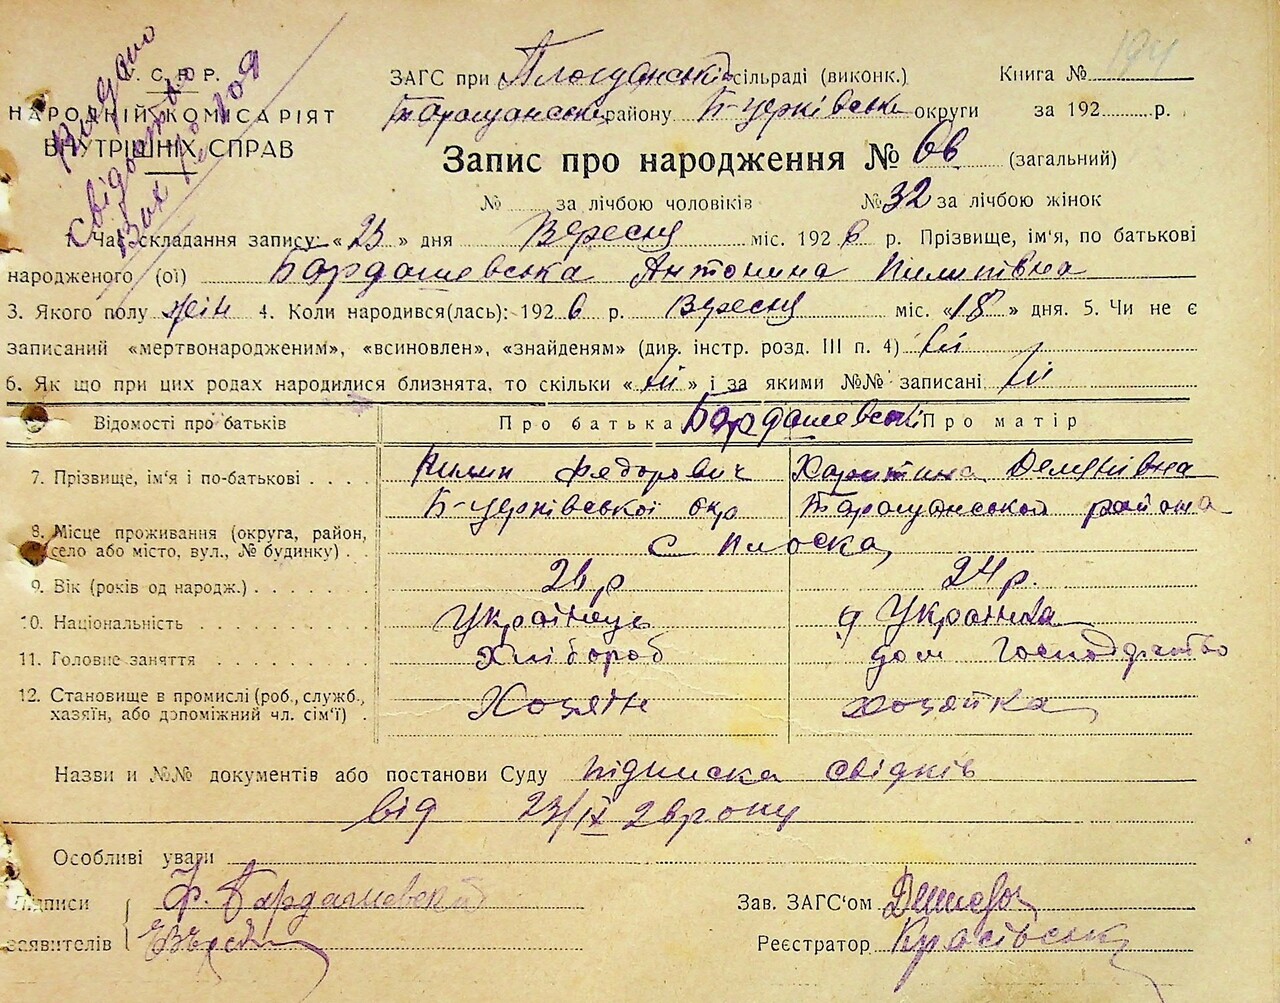 Видано
свідоцтво
У. С. Р. Р.
НАРОДНІЙ КОМІСАРІЯТ
ВНУТРІШНІХ СПРАВ
194
ЗАГС при Плосцанські сільраді (виконк.) Книга №
Таращанськ району Б-Церківськ округи за 192 р.
Запис про народження № 66 (загальний)
№ за лічбою чоловіків № 32 за лічбою жінок
1. Час складання запису: « 23 » дня Вересня міс. 1926 р. Прізвище, ім'я, по батькові
народженого (ої) Бардашевська Антонина Пилипівна
3. Якого полу жін 4. Коли народився(лась): 1926 р. Вересня міс. «18» дня. 5. Чи не є
записаний «мертвонародженим», «всиновлен», «знайденям» (див. інстр. розд. III п. 4) ні
6. Як що при цих родах народилися близнята, то скільки « ні » і за якими №№ записані ні
Відомості про батьків Про батька Бардашевські Про матір
7. Прізвище, ім'я і по-батькові . . . . Пилип Федорович Харитина Демидівна
Б-Церківської окр Таращанской района
8. Місце проживання (округа, район,
село або місто, вул., № будинку) . . с Плоска
9. Вік (років од народж.) . . . . . . . 26 р 24 р.
10. Національність . . . . . . . . Українець Українка
11. Головне заняття . . . . . . . . Хлібороб дом господарство
12. Становище в промислі (роб., служб.,
хазяїн, або допоміжний чл. сім'ї) . Хозяїн хозяйка
Назви и №№ документів або постанови Суду підписка свідків
від 23/IX 26 року
Особливі уваги
Підписи Ф. Бардашевский Зав. ЗАГС'ом
заявителів Реєстратор Красівськ